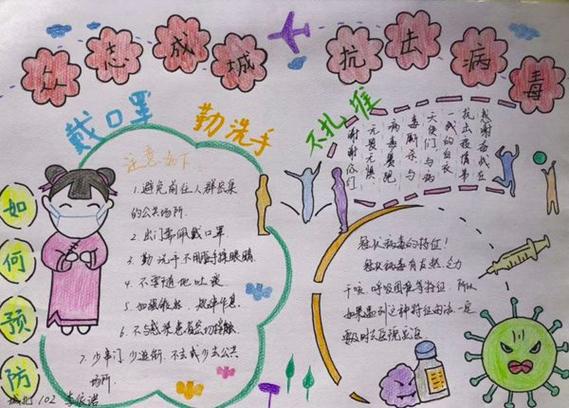 众志成城
抗击病毒
戴口罩
勤洗手
不扎堆
如何预防
注意如下:
1.避免前往人群密集
的公共场所.
2.出门要佩戴口罩.
3.勤洗手不用脏手揉眼睛.
4.不要随地吐痰.
5.
6.不与感染患者密切接触.
7.少串门少逛街.不去或少去公共
场所.
感谢奋战在
抗击疫情第
一线的白衣
天使们
病毒
无畏无惧
谢谢你们
冠状病毒的特征!
冠状病毒有发热、乏力
干咳、呼吸困难等特征,所以
如果遇到这种特征的话,一定
要及时去医院就医
102